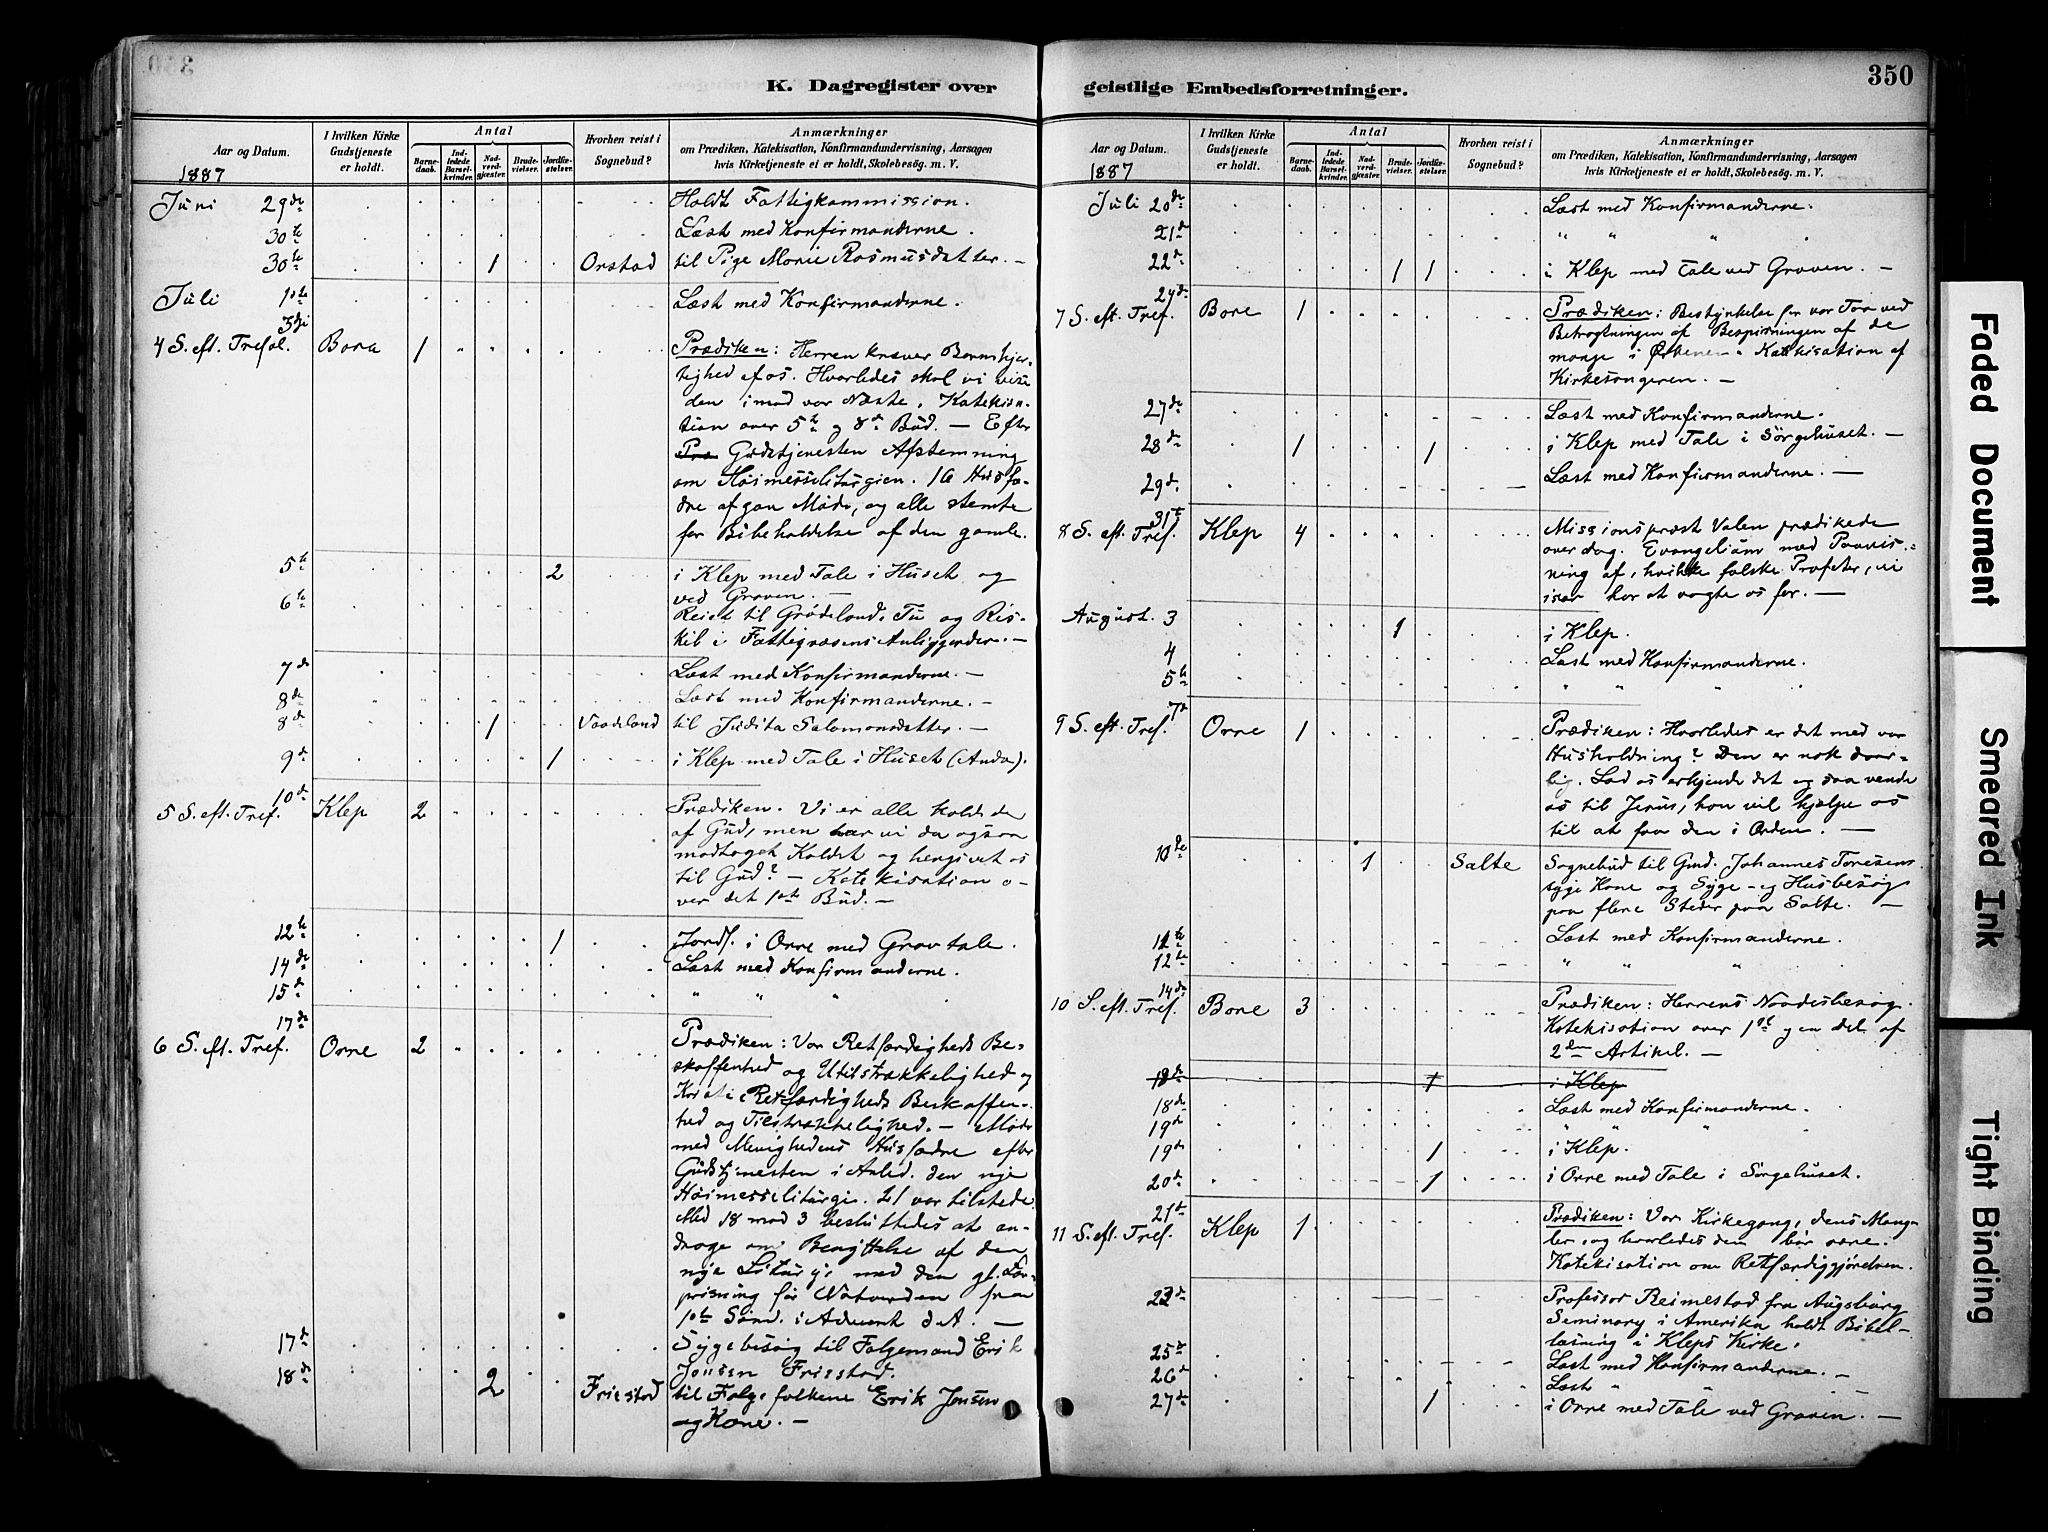 K. Dagregister over
Aar og Datum.
1887
I hvilken Kirke Gudstjeneste er holdt.
Antal
Barne- daab.
Ind- ledede Barsel- kvinder.
Nad- verd- gjester.
Brude- vielser.
Jordfæ- stelser.
Hvorhen reist i Sognebud?
Anmærkninger
om Prædiken, Katekisation, Konfirmandundervisning, Aarsagen
hvis Kirketjeneste ei er holdt, Skolebesøg. m. V.
Juni 29de Holdt Fattigkommission.
30te Læst med Konfirmanderne.
30te 1 Orstad til Pige Marie Rasmusdatter. —
Juli 1ste Læst med Konfirmanderne.
3die
4 S. eft. Tref. Bore 1 Prædiken: Herren kræver Barmhjer-
tighed af os. Hvorledes skal vi vise
den imod vor Næste. Katekisa-
tion over 5te og 8de Bud. — Efter
Præ Gudstjenesten Afstemning
om Høimesseliturgien. 16 Husfæ-
dre afgav Møde, og alle stemte
for Bibeholdelse af den gamle.
5te 2 i Klep med Tale i Huset og
ved Graven. —
6te Reist til Grødeland, Tu og Ris-
kil i Fattigvæsens Anliggender. —
7de Læst med Konfirmanderne. —
8de Læst med Konfirmanderne. —
8de 1 Vaadeland til Judita Salomonsdatter. —
9de 1 i Klep med Tale i Huset (Anda).
10de
5 S. eft. Tref. Klep 2 Prædiken. Vi er alle kaldede
af Gud, men har vi da ogsaa
modtaget Kaldet og hengivet os
til Gud? — Katekisation o-
ver det 1ste Bud. —
12te 1 Jordf. i Orre med Gravtale.
14de Læst med Konfirmanderne.
15de " " "
17de
6 S. eft. Tref. Orre 2 Prædiken: Vor Retfærdigheds Be-
skaffenhed og Utilstrækkelighed og
Kristi Retfærdigheds Beskaffen-
hed og Tilstrækkelighed. — Møde
med Menighedens Husfædre efter
Gudstjenesten i Anled. den nye
Høimesseliturgi. 21 var tilstede.
Med 18 mod 3 besluttedes at an-
drage om Benyttelse af den
nye Liturgi med den gl. Lov-
prisning før Nadverden fra
1ste Sønd. i Advent d.A. —
17de Sygebesøg til Folgemand Erik
Jonsen Friestad.
18de 2 Friestad til Folgefolkene Erik Jonsen
og Kone. —
geistlige Embedsforretninger.
350
Aar og Datum.
1887
I hvilken Kirke Gudstjeneste er holdt.
Antal
Barne- daab.
Ind- ledede Barsel- kvinder.
Nad- verd- gjester.
Brude- vielser.
Jordfæ- stelser.
Hvorhen reist i Sognebud?
Anmærkninger
om Prædiken, Katekisation, Konfirmandundervisning, Aarsagen
hvis Kirketjeneste ei er holdt, Skolebesøg. m. V.
Juli 20de Læst med Konfirmanderne.
21de " " " "
22de 1 1 i Klep med Tale ved Graven. —
24de
7 S. eft. Tref. Bore 1 Prædiken: Bestyrkelse for vor Tro ved
Betragtningen af Bespisningen af de
mange i Ørkenen. Katekisation af
Kirkesangeren. —
27de Læst med Konfirmanderne.
28de 1 1 i Klep med Tale i Sørgehuset. —
29de. Læst med Konfirmanderne. —
31te
8 S. eft. Tref. Klep 4 Missionsprest Valen prædikede
over dag. Evangelium med Paavis-
ning af, hvilke falske Profeter, vi
især har at vogte os for. —
August. 3 1 i Klep.
4 Læst med Konfirmanderne.
5te " " " "
7de
9 S. eft. Tref. Orre 1 Prædiken: Hvorledes er det med vor
Husholdning? Den er nok daar-
lig. Lad os erkjende det og saa vende
os til Jesus, han vil hjælpe os
til at faa den i Orden. —
10de 1 Salte Sognebud til Gmd. Johannes Toresens
syge Kone og Syge- og Husbesøg
paa flere Steder paa Salte. —
11te Læst med Konfirmanderne.
12te " " "
14de
10 S. eft. Tref. Bore 3 Prædiken: Herrens Naadesbesøg.
Katekisation over 1ste og en del af
2den Artikel. —
18de 1 i Klep
18de Læst med Konfirmanderne.
19de " " " "
19de 1 i Klep.
20de 1 i Orre med Tale i Sørgehuset.
21de
11 S. eft. Tref. Klep 1 Prædiken: Vor Kirkegang, dens Mang-
ler, og hvorledes den bør være.
Katekisation om Retfærdiggjørelsen.
23de Professor Reimestad fra Augsburg
Seminary i Amerika holdt Bibel-
læsning i Kleps Kirke.
25de Læst med Konfirmanderne. —
26de Læst " "
27de 1 i Orre med Tale ved Graven. —
Faded Document
Smeared Ink
Tight Binding